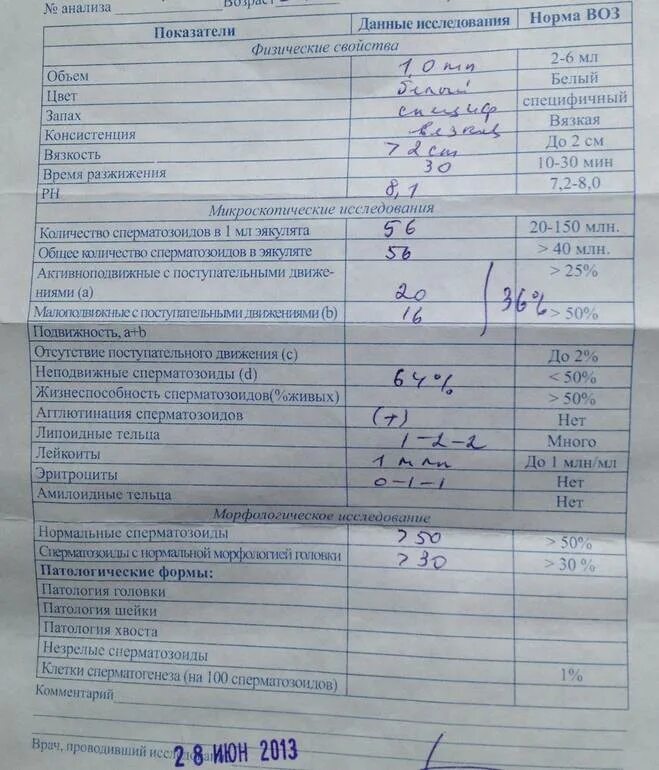 № анализа Возраст
Показатели Данные исследования Норма ВОЗ
Физические свойства
Объем 1,0 мл 2-6 мл
Цвет белый Белый
Запах специф специфичный
Консистенция вязкая Вязкая
Вязкость >2 см До 2 см
Время разжижения 30 10-30 мин
РН 8,1 7,2-8,0
Микроскопические исследования
Количество сперматозоидов в 1 мл эякулята 56 20-150 млн.
Общее количество сперматозоидов в эякуляте 56 > 40 млн.
Активноподвижные с поступательными движе- > 25%
ниями (а) 20
Малоподвижные с поступательными движениями (b) 16 36% > 50%
Подвижность, a+b
Отсутствие поступательного движения (с) До 2%
Неподвижные сперматозоиды (d) 64% < 50%
Жизнеспособность сперматозоидов(%живых) > 50%
Агглютинация сперматозоидов (+) Нет
Липоидные тельца 1-2-2 Много
Лейкоиты 1 млн До 1 млн/мл
Эритроциты 0-1-1 Нет
Амилоидные тельца Нет
Морфологическое исследование
Нормальные сперматозоиды >50 > 50%
Сперматозоиды с нормальной морфологией головки >30 > 30 %
Патологические формы:
Патология головки
Патология шейки
Патология хвоста
Незрелые сперматозоиды
Клетки сперматогенеза (на 100 сперматозоидов) 1%
Комментарий
Врач, проводивший 28 ИЮН 2013